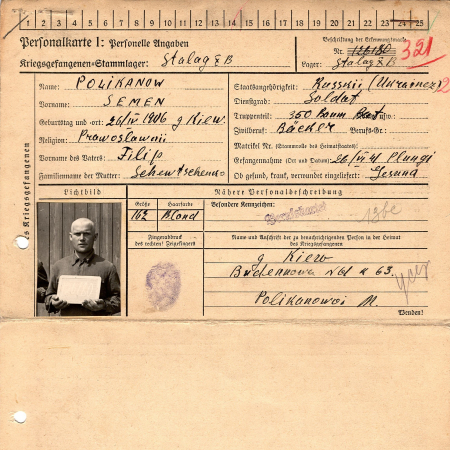 1 2 3 4 5 6 7 8 9 10 11 12 13 14 15 16 17 18 19 20 21 22 23 24 25
Personalkarte I: Personelle Angaben
Kriegsgefangenen-Stammlager: Stalag X B
Beschriftung der Erkennungsmarke
Nr. 126180 321
Lager: Stalag X B
des Kriegsgefangenen
Name: POLIKANOW
Vorname: SEMEN
Geburtstag und -ort: 26/IV 1906 g Kiew
Religion: Prawoslawnii
Vorname des Vaters: Filip
Familienname der Mutter:
Staatsangehörigkeit: Russkii (Ukrainez)
Dienstgrad: Soldat
Truppenteil: 350
Zivilberuf: Bäcker Berufs-Gr.:
Matrikel Nr. (Stammrolle des Heimatstaates):
Gefangennahme (Ort und Datum): 26/VI 41 Plungi
Ob gesund, krank, verwundet eingeliefert: Gesund
Lichtbild
Nähere Personalbeschreibung
Größe Haarfarbe Besondere Kennzeichen:
162 Blond
Fingerabdruck
des rechten! Zeigefingers
Name und Anschrift der zu benachrichtigenden Person in der Heimat
des Kriegsgefangenen
g Kiew
63.
Polikanowoi M.
Wenden!